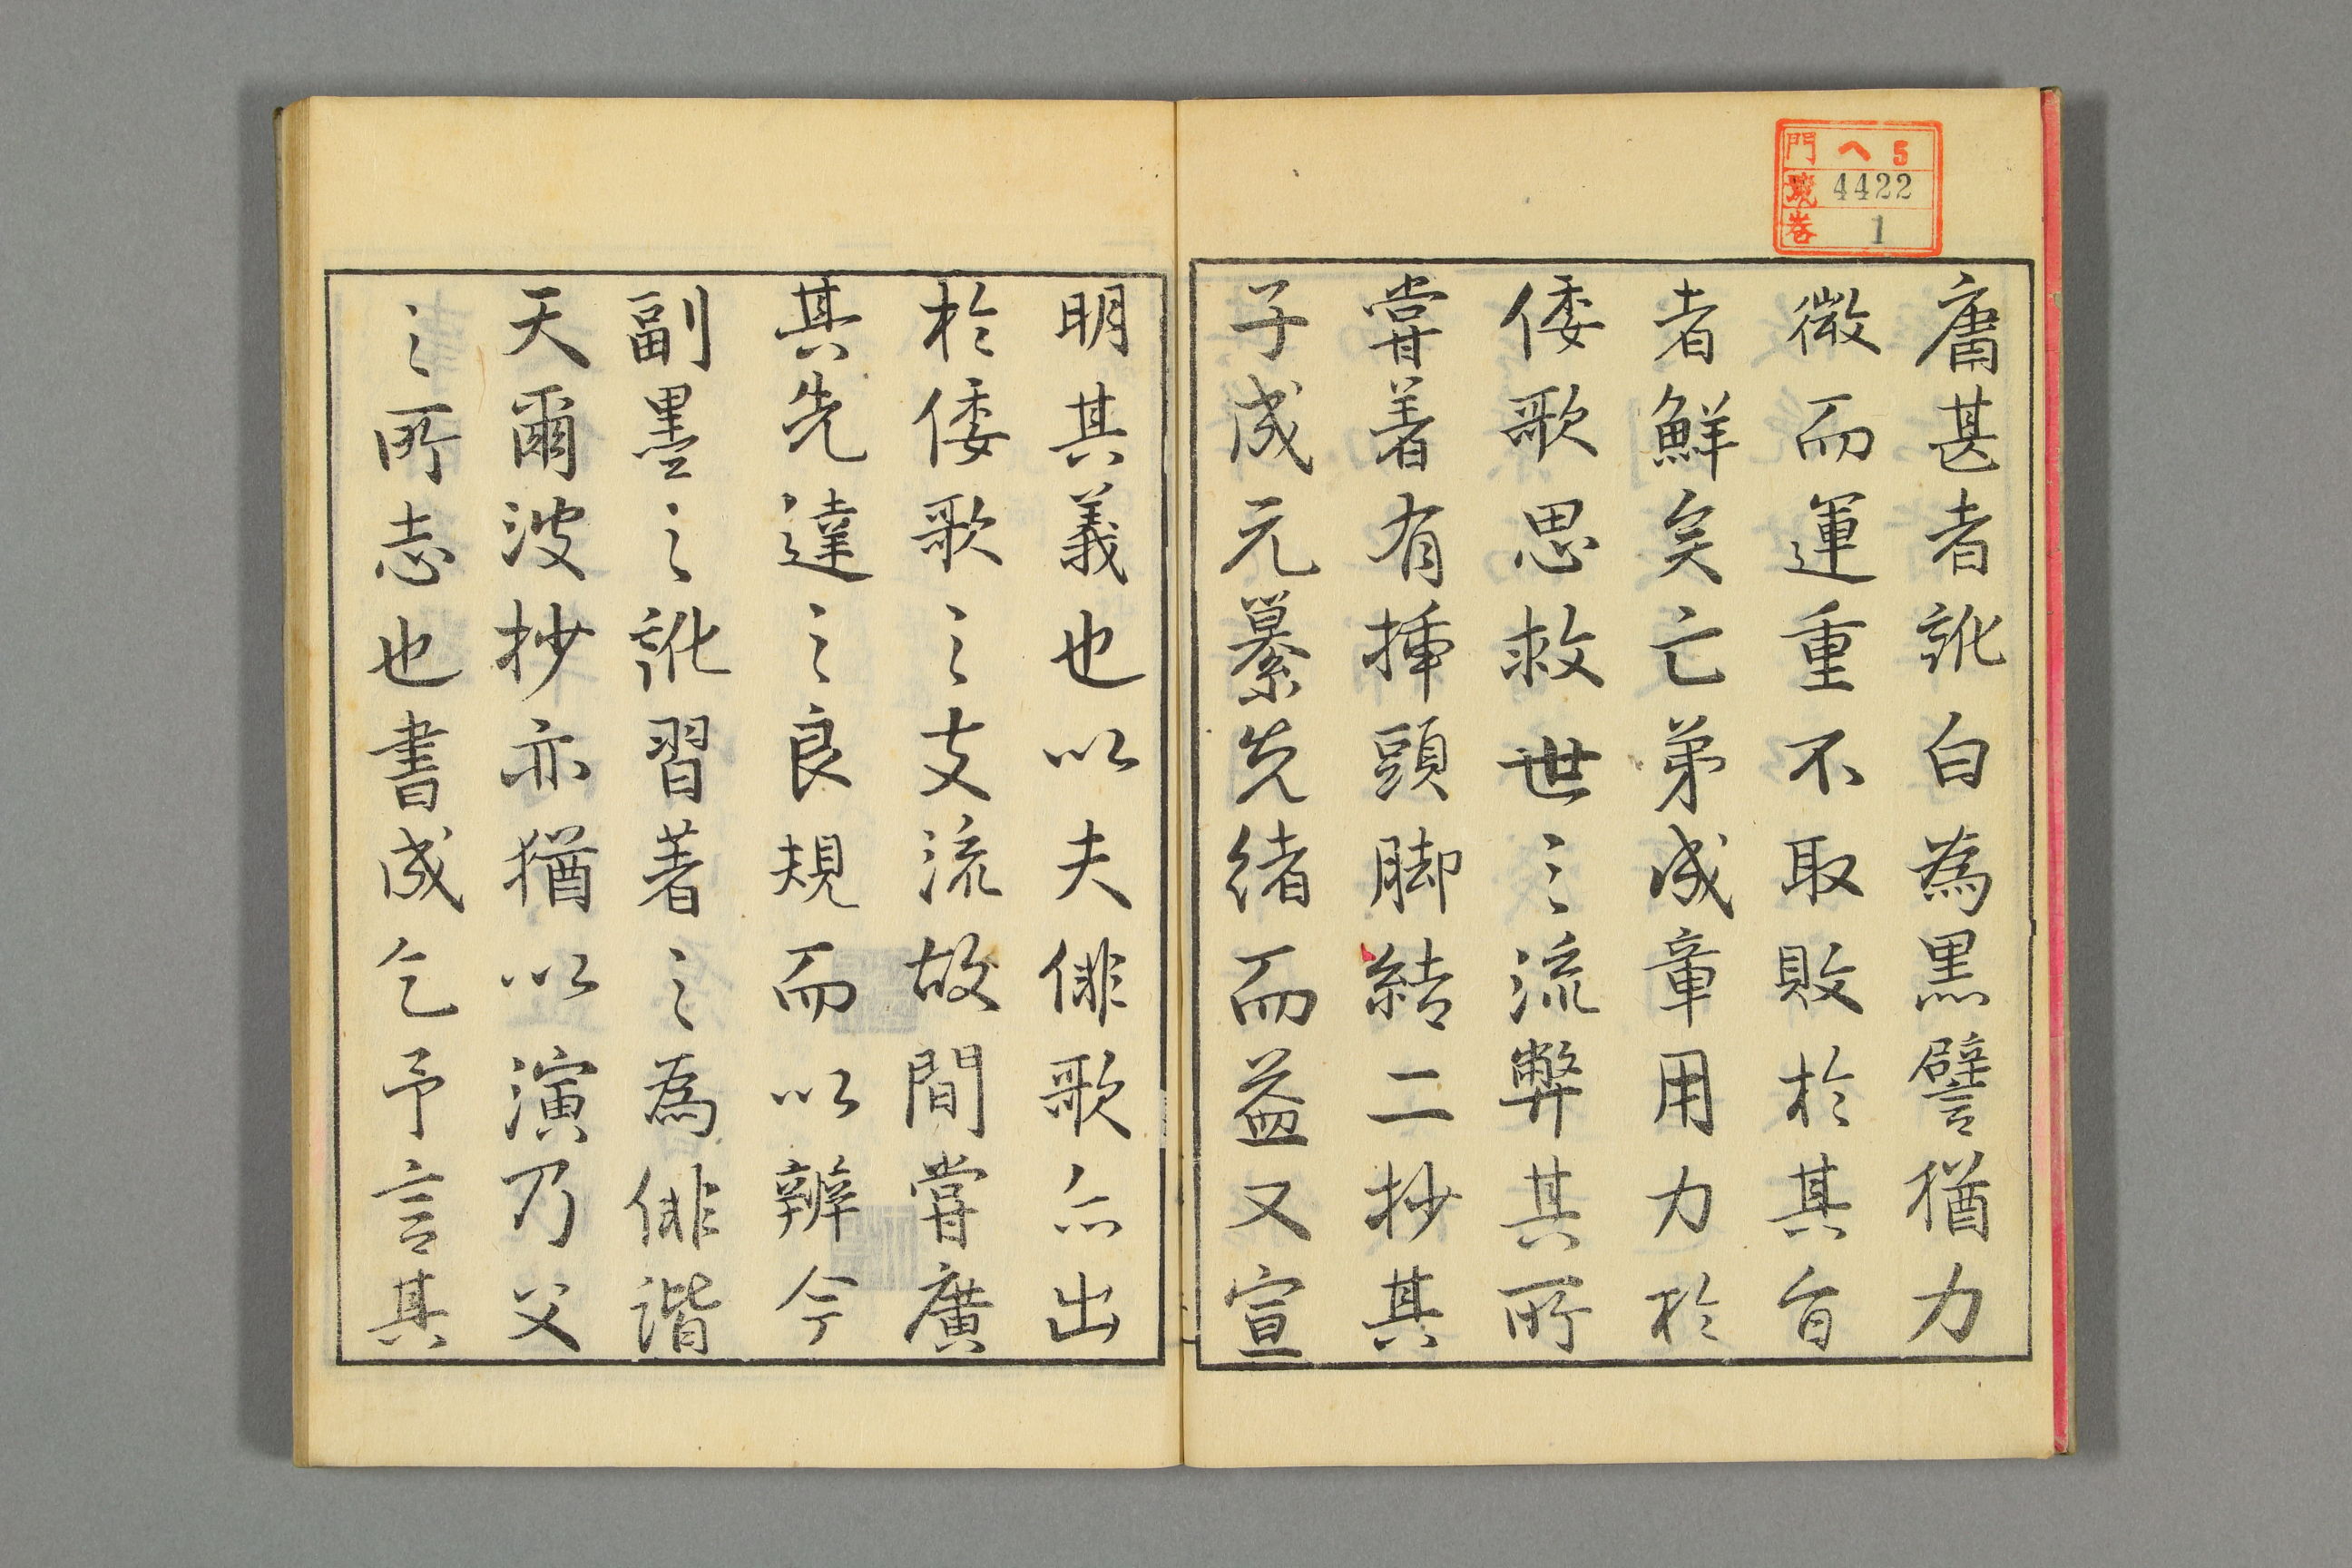 門 ヘ 5
號 4422
巻 1
庮甚者訛白為黒譬猶力
微而運重不取敗於其旨
者鮮矣亡弟成章用力於
倭歌思救世之流弊其所
甞着有揷頭脚結二抄其
子成元纂先緒而益又宣
明其義也以夫俳歌亦出
於倭歌之支流故間甞廣
其先達之良規而以辨今
副墨之訛習著之為俳諧
天爾波抄亦猶以演乃父
之所志也書成乞予言其